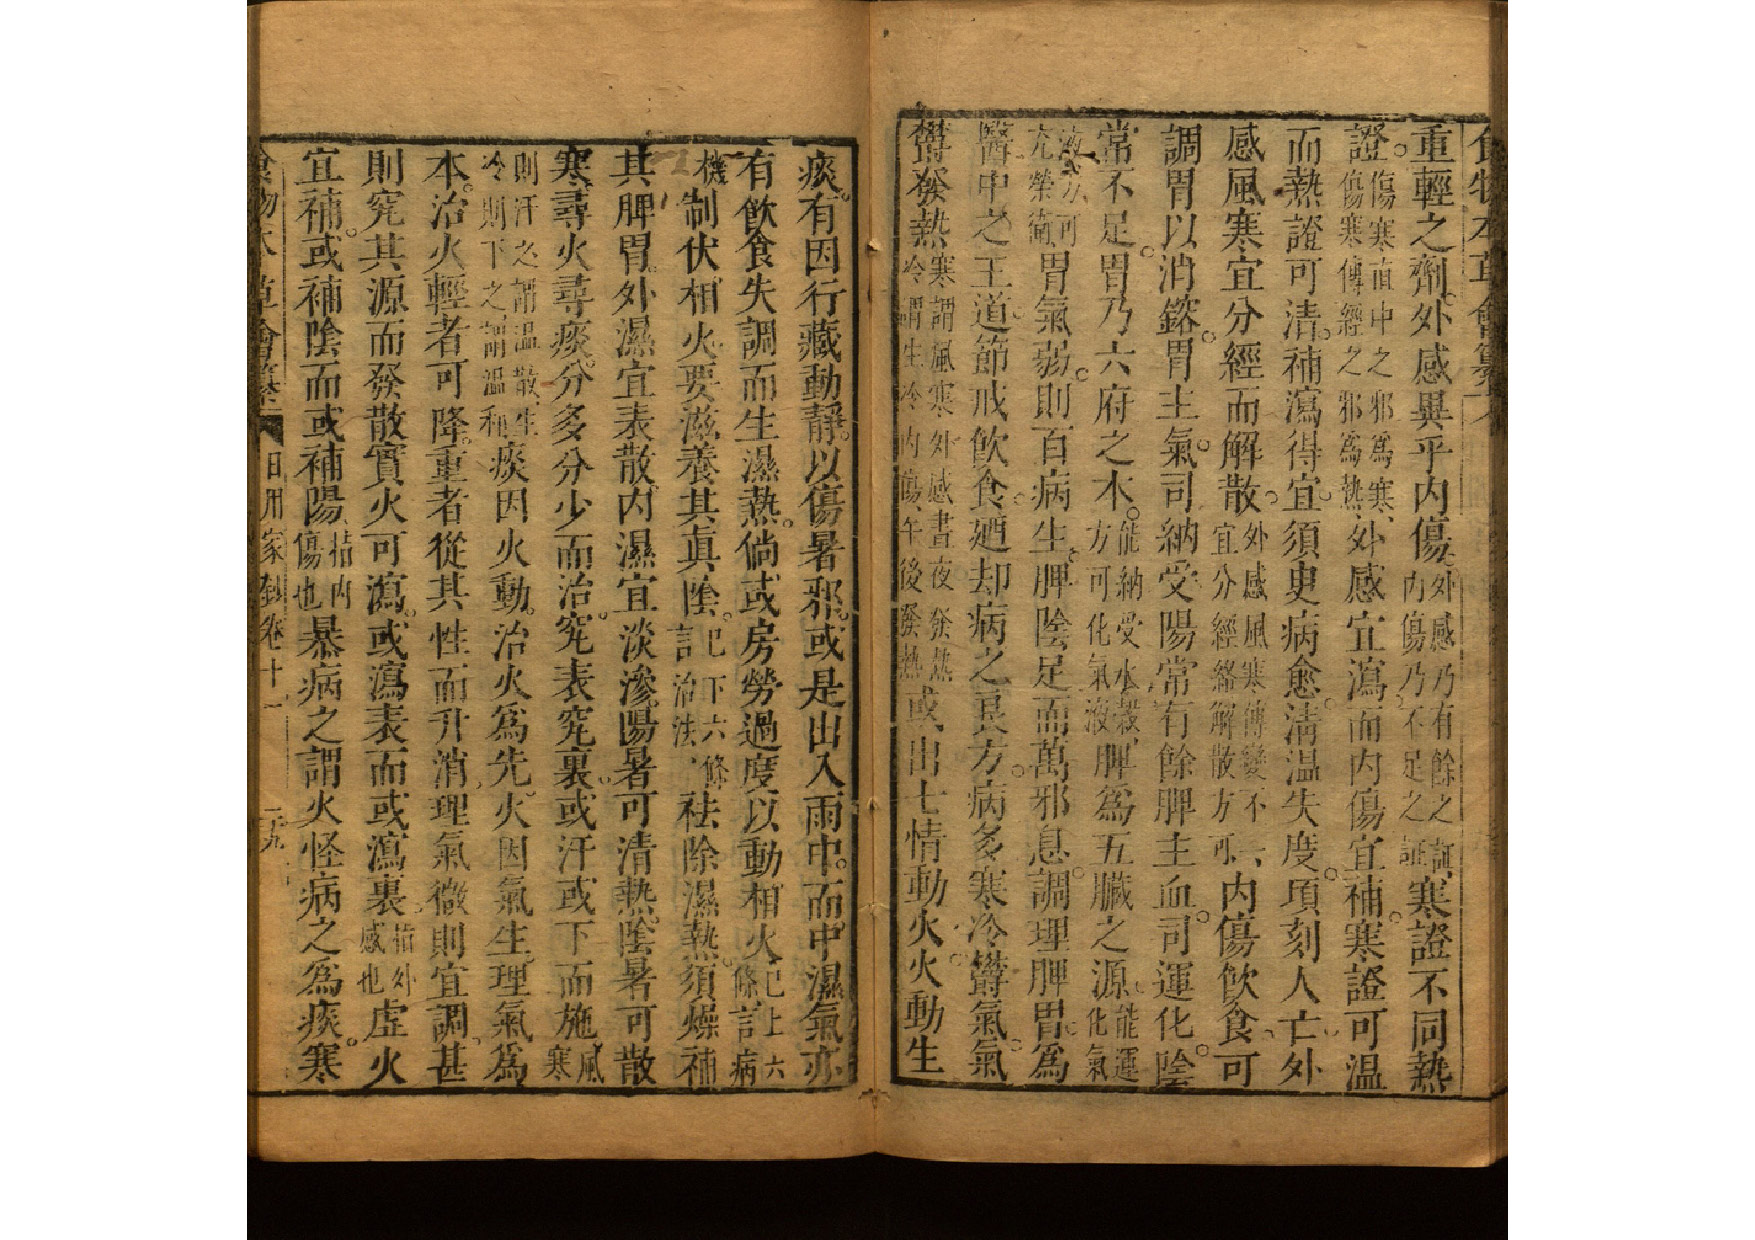 食物本草會纂
重輕之劑外感異乎內傷外感乃有餘之証內傷乃不足之証寒證不同熱
證傷寒直中之邪爲寒傷寒傳經之邪爲熱外感宜瀉而內傷宜補寒證可溫
而熱證可清補瀉得宜須臾病愈清溫失度頃刻人亡外
感風寒宜分經而解散外感風寒傳變不一宜分經絡解散方可內傷飲食可
調胃以消鎔胃主氣司納受陽常有餘脾主血司運化陰
常不足胃乃六府之本能納受水穀方可化氣液脾爲五臟之源能運化氣
液方可充榮衛胃氣弱則百病生脾陰足而萬邪息調理脾胃爲
醫中之王道節戒飲食廼却病之良方病多寒冷欝氣氣
欝發熱寒謂風寒外感晝夜發熱冷謂生冷內傷午後發熱或出七情動火火動生
痰有因行藏動靜以傷暑邪或是出入雨中而中濕氣亦
有飲食失調而生濕熱倘或房勞過度以動相火已上六條言病
機制伏相火要滋養其眞陰已下六條言治法祛除濕熱須燥補
其脾胃外濕宜表散內濕宜淡滲陽暑可清熱陰暑可散
寒尋火尋痰分多分少而治究表究裏或汗或下而施風寒
則汗之謂溫散生冷則下之謂溫利痰因火動治火爲先火因氣生理氣爲
本治火輕者可降重者從其性而升消理氣微則宜調甚
則究其源而發散實火可瀉或瀉表而或瀉裏指外感也虛火
宜補或補陰而或補陽指內傷也暴病之謂火怪病之爲痰寒
食物本草會纂 日用家鈔卷十一 二十九